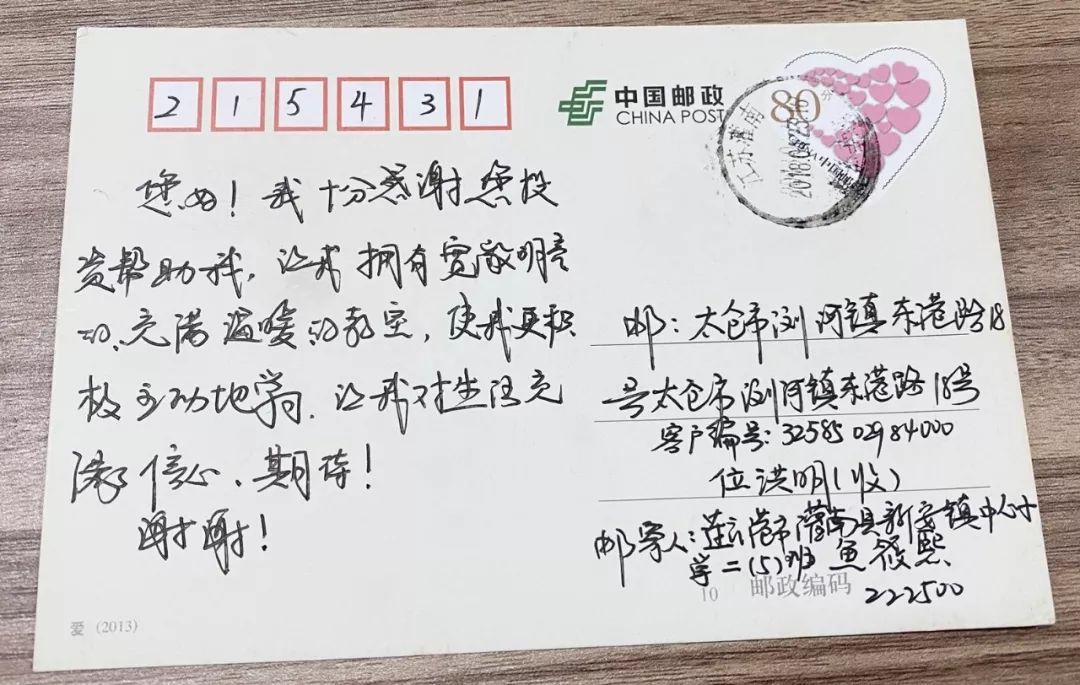 215431
中国邮政
CHINA POST
80分
江苏灌南
2018
您好！我十分感谢您投
资帮助我，让我拥有宽敞明亮
的、充满温暖的教室，使我更积
极主动地学习，让我对生活充
满了信心、期待！
谢谢！
邮：太仓市浏河镇东港路18
号太仓市浏河镇东港路18号
客户编号：32585 02984000
位洪明（收）
邮寄人：连云港市灌南县新安镇中心小
学二（5）班 鱼筱熙
222500
10 邮政编码
爱 (2013)